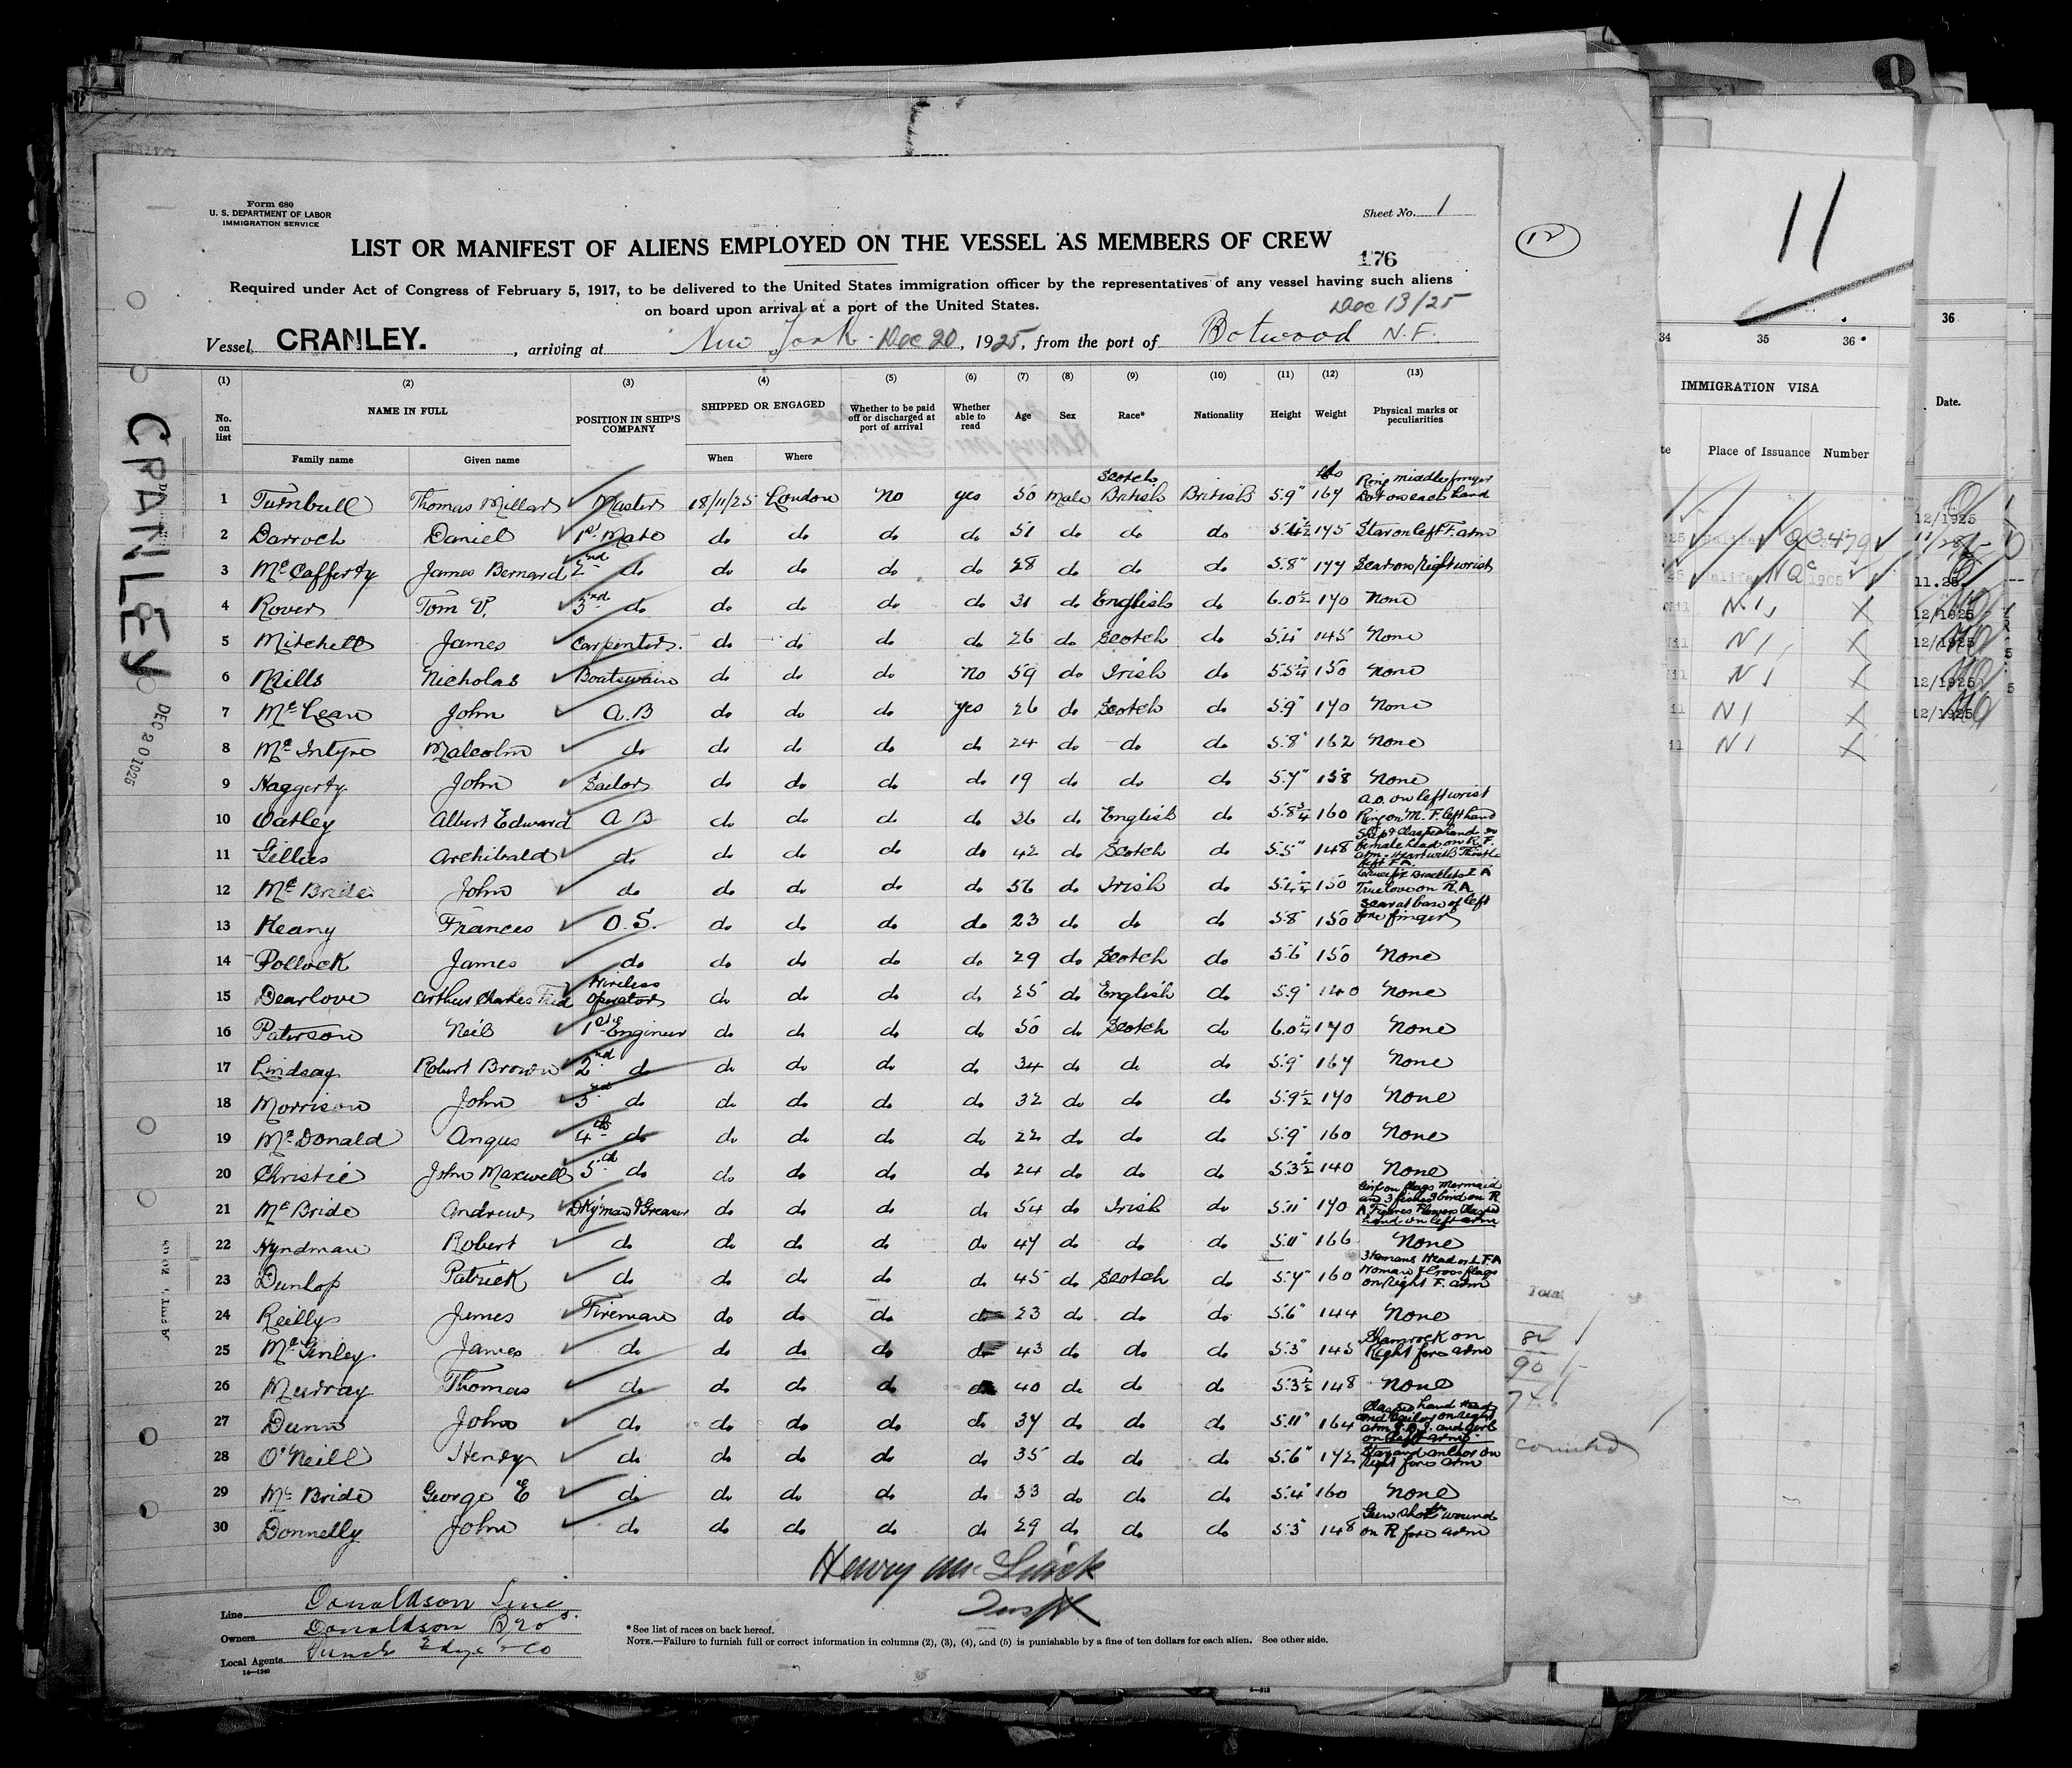 Form 680
U. S. DEPARTMENT OF LABOR
IMMIGRATION SERVICE
Sheet No. 1
LIST OR MANIFEST OF ALIENS EMPLOYED ON THE VESSEL AS MEMBERS OF CREW
176
12
Required under Act of Congress of February 5, 1917, to be delivered to the United States immigration officer by the representatives of any vessel having such aliens
on board upon arrival at a port of the United States.
Dec 13/25
Vessel CRANLEY. , arriving at New York Dec 20, 1925, from the port of Botwood N.F.
(1) (2) (3) (4) (5) (6) (7) (8) (9) (10) (11) (12) (13)
No. on list NAME IN FULL POSITION IN SHIP'S COMPANY SHIPPED OR ENGAGED Whether to be paid off or discharged at port of arrival Whether able to read Age Sex Race* Nationality Height Weight Physical marks or peculiarities
Family name Given name When Where
1 Turnbull Thomas Millar Master 18/11/25 London No yes 50 Male Scotch British British 5.9" lbs 167 Ring middle finger Dot on each hand
2 Darroch Daniel 1st Mate do do do do 51 do do do 5.4½ 175 Star on left F. arm
3 McCafferty James Bernard 2nd do do do do do 28 do do do 5.8" 177 Scar on Right wrist
4 Rover Tom V. 3rd do do do do do 31 do English do 6.0½ 170 None
5 Mitchell James Carpenter. do do do do 26 do Scotch do 5.4" 145 None
6 Mills Nicholas Boatswain do do do No 59 do Irish do 5.5¼ 150 None
7 McLean John A.B do do do yes 26 do Scotch do 5.9" 170 None
8 McIntyre Malcolm do do do do do 24 do do do 5.8" 162 None
9 Haggerty John Sailor do do do do 19 do do do 5.7" 158 None
10 Oatley Albert Edward A B do do do do 36 do English do 5.8¾ 160 A.O. on left wrist Ring on M. F. left hand
11 Gillies Archibald do do do do do 42 do Scotch do 5.5" 148 Ship & Clasped hand on female head on R. F. arm. Heart with Thistle left F.A.
12 McBride John do do do do do 56 do Irish do 5.4½ 150 Crucifix Bracelets L A True love on R.A
13 Keany Frances O.S. do do do do 23 do do do 5.8" 150 Scar at base of left fore finger
14 Pollock James do do do do do 29 do Scotch do 5.6" 150 None
15 Dearlove Arthur Charles Fred Wireless Operator do do do do 25 do English do 5.9" 140 None
16 Paterson Neil 1st Engineer do do do do 50 do Scotch do 170 None
17 Lindsay Robert Brown 2nd do do do do do 34 do do do 5.9" 167 None
18 Morrison John 3rd do do do do do 32 do do do 5.9½ 170 None
19 McDonald Angus 4th do do do do do 22 do do do 5.9" 160 None
20 Christie John Maxwell 5th do do do do do 24 do do do 5.3½ 140 None
21 McBride Andrew Dkyman & Greaser do do do do 54 do Irish do 5.11" 170 Girl on flags Mermaid and 3 fishes & bird on R A Figures Flowers Clasped hand on left arm
22 Hyndman Robert do do do do do 47 do do do 5.11" 166 None
23 Dunlop Patrick do do do do do 45 do Scotch do 5.7" 160 Head on L F A Woman & Cross flags on Right F. arm
24 Reilly James Fireman do do do do 23 do do do 5.6" 144 None
25 McGinley James do do do do do 43 do do do 5.3" 145 Shamrock on Right fore arm
26 Murray Thomas do do do do do 40 do do do 5.3½ 148 None
27 Dunn John do do do do do 37 do do do 5.11" 164 Clasped hand Head and Sailor on Right arm and Girl on left arm
28 O'Neill Henry do do do do do 35 do do do 5.6" 172 Star and anchor on Right fore arm
29 McBride George E do do do do do 33 do do do 5.4" 160 None
30 Donnelly John do do do do do 29 do do do 5.5" 148 Gun Shot wound on R fore arm
Line Donaldson Line
Owners Donaldson Bros.
Local Agents Funch Edye & Co
14—1240
*See list of races on back hereof.
NOTE.—Failure to furnish full or correct information in columns (2), (3), (4), and (5) is punishable by a fine of ten dollars for each alien. See other side.
CRANLEY
DEC 20 1925
Total
90
11
34 35 36
IMMIGRATION VISA
Place of Issuance Number
Nil
Nil
Nil
36
Date.
12/1925
11.25
12/1925
12/1925
12/1925
12/1925